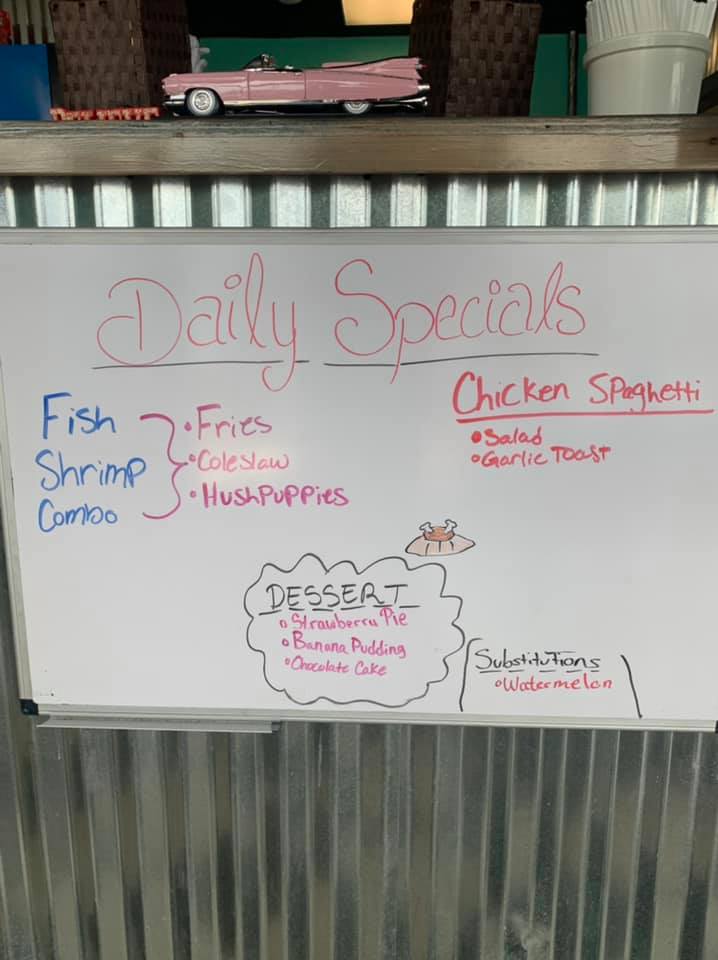 Daily Specials
Fish
Shrimp
Combo
• Fries
• Coleslaw
• Hushpuppies
Chicken Spaghetti
• Salad
• Garlic Toast
DESSERT
• Strawberry Pie
• Banana Pudding
• Chocolate Cake
Substitutions
• Watermelon